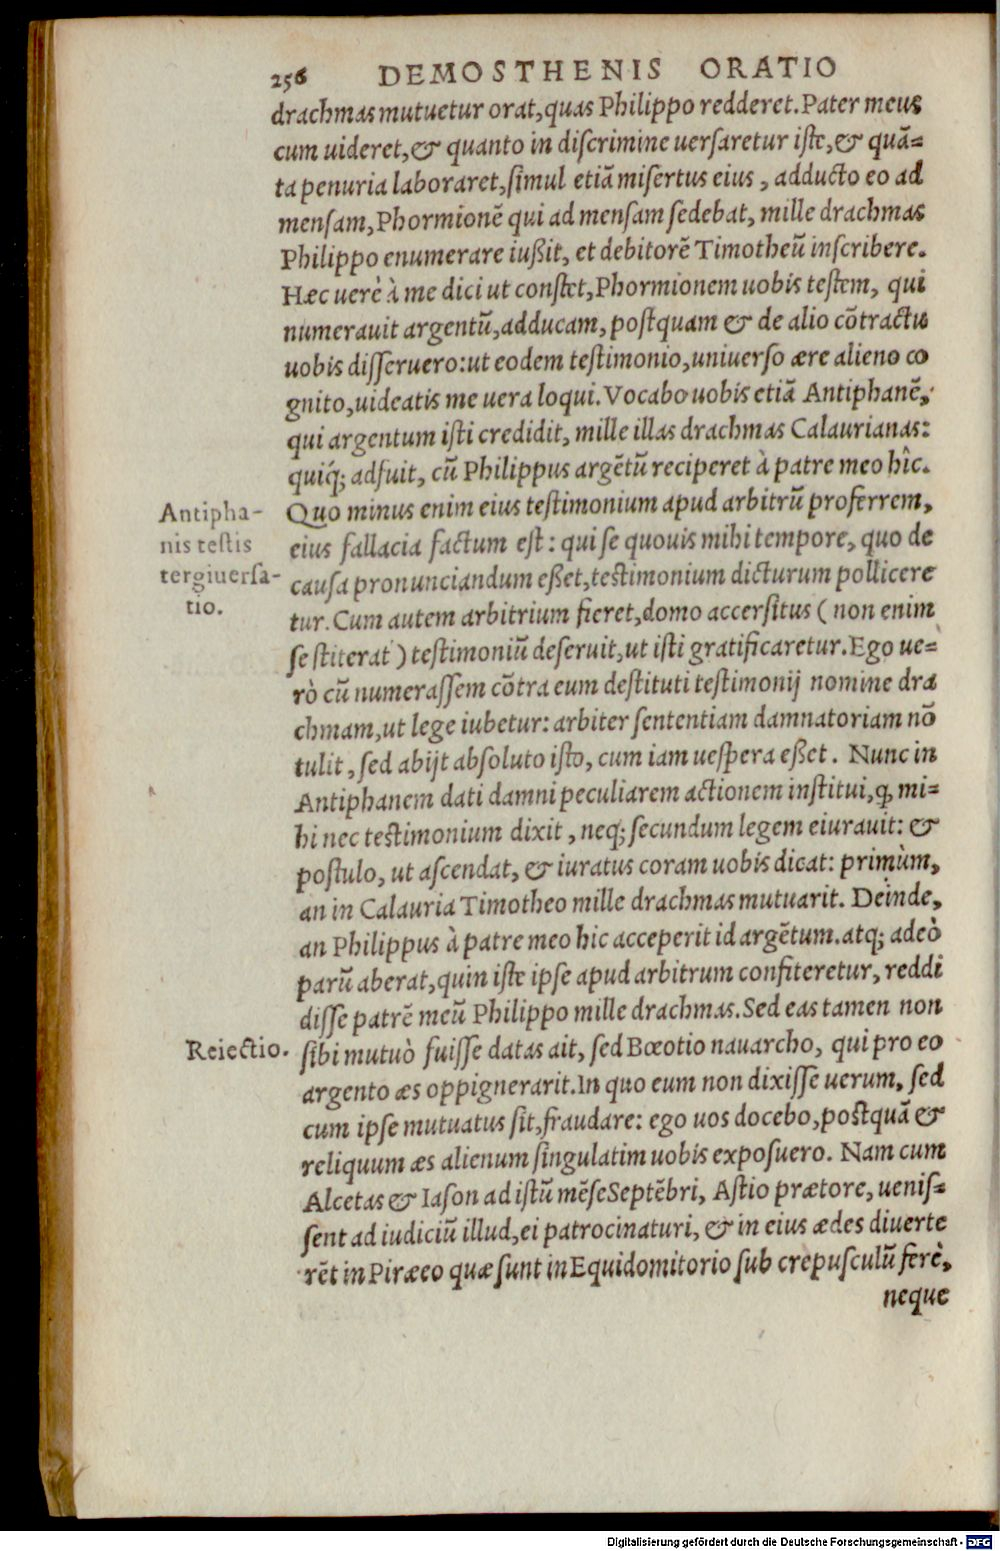 256 DEMOSTHENIS ORATIO
drachmas mutuetur orat, quas Philippo redderet. Pater meus
cum uideret, & quanto in discrimine uersaretur iste, & quã=
ta penuria laboraret, simul etiã misertus eius, adducto eo ad
mensam, Phormionẽ qui ad mensam sedebat, mille drachmas
Philippo enumerare iußit, et debitorẽ Timotheũ inscribere.
Hæc uerè à me dici ut constet, Phormionem uobis testem, qui
numerauit argentũ, adducam, postquam & de alio cõtractu
uobis disseruero: ut eodem testimonio, uniuerso ære alieno co
gnito, uideatis me uera loqui. Vocabo uobis etiã Antiphanẽ,
qui argentum isti credidit, mille illas drachmas Calaurianas:
quiq́; adfuit, cũ Philippus argẽtũ reciperet à patre meo hîc.
Antipha-
nis testis
tergiuersa-
tio.
Quo minus enim eius testimonium apud arbitrũ proferrem,
eius fallacia factum est: qui se quouis mihi tempore, quo de
causa pronunciandum eßet, testimonium dicturum pollicere
tur. Cum autem arbitrium fieret, domo accersitus ( non enim
se stiterat ) testimoniũ deseruit, ut isti gratificaretur. Ego ue=
rò cũ numerassem cõtra eum destituti testimonij nomine dra
chmam, ut lege iubetur: arbiter sententiam damnatoriam nõ
tulit, sed abijt absoluto isto, cum iam uespera eßet. Nunc in
Antiphanem dati damni peculiarem actionem institui, q, mi=
hi nec testimonium dixit, neq; secundum legem eiurauit: &
postulo, ut ascendat, & iuratus coram uobis dicat: primùm,
an in Calauria Timotheo mille drachmas mutuarit. Deinde,
an Philippus à patre meo hic acceperit id argẽtum. atq; adeò
parũ aberat, quin iste ipse apud arbitrum confiteretur, reddi
disse patrẽ meũ Philippo mille drachmas. Sed eas tamen non
Reiectio.
sibi mutuò fuisse datas ait, sed Bœotio nauarcho, qui pro eo
argento æs oppignerarit. In quo eum non dixisse uerum, sed
cum ipse mutuatus sit, fraudare: ego uos docebo, postquã &
reliquum æs alienum singulatim uobis exposuero. Nam cum
Alcetas & Iason ad istũ mẽse Septẽbri, Astio prætore, uenis=
sent ad iudiciũ illud, ei patrocinaturi, & in eius ædes diuerte
rẽt in Piræeo quæ sunt in Equidomitorio sub crepusculũ ferè,
neque
Digitalisierung gefördert durch die Deutsche Forschungsgemeinschaft - DFG